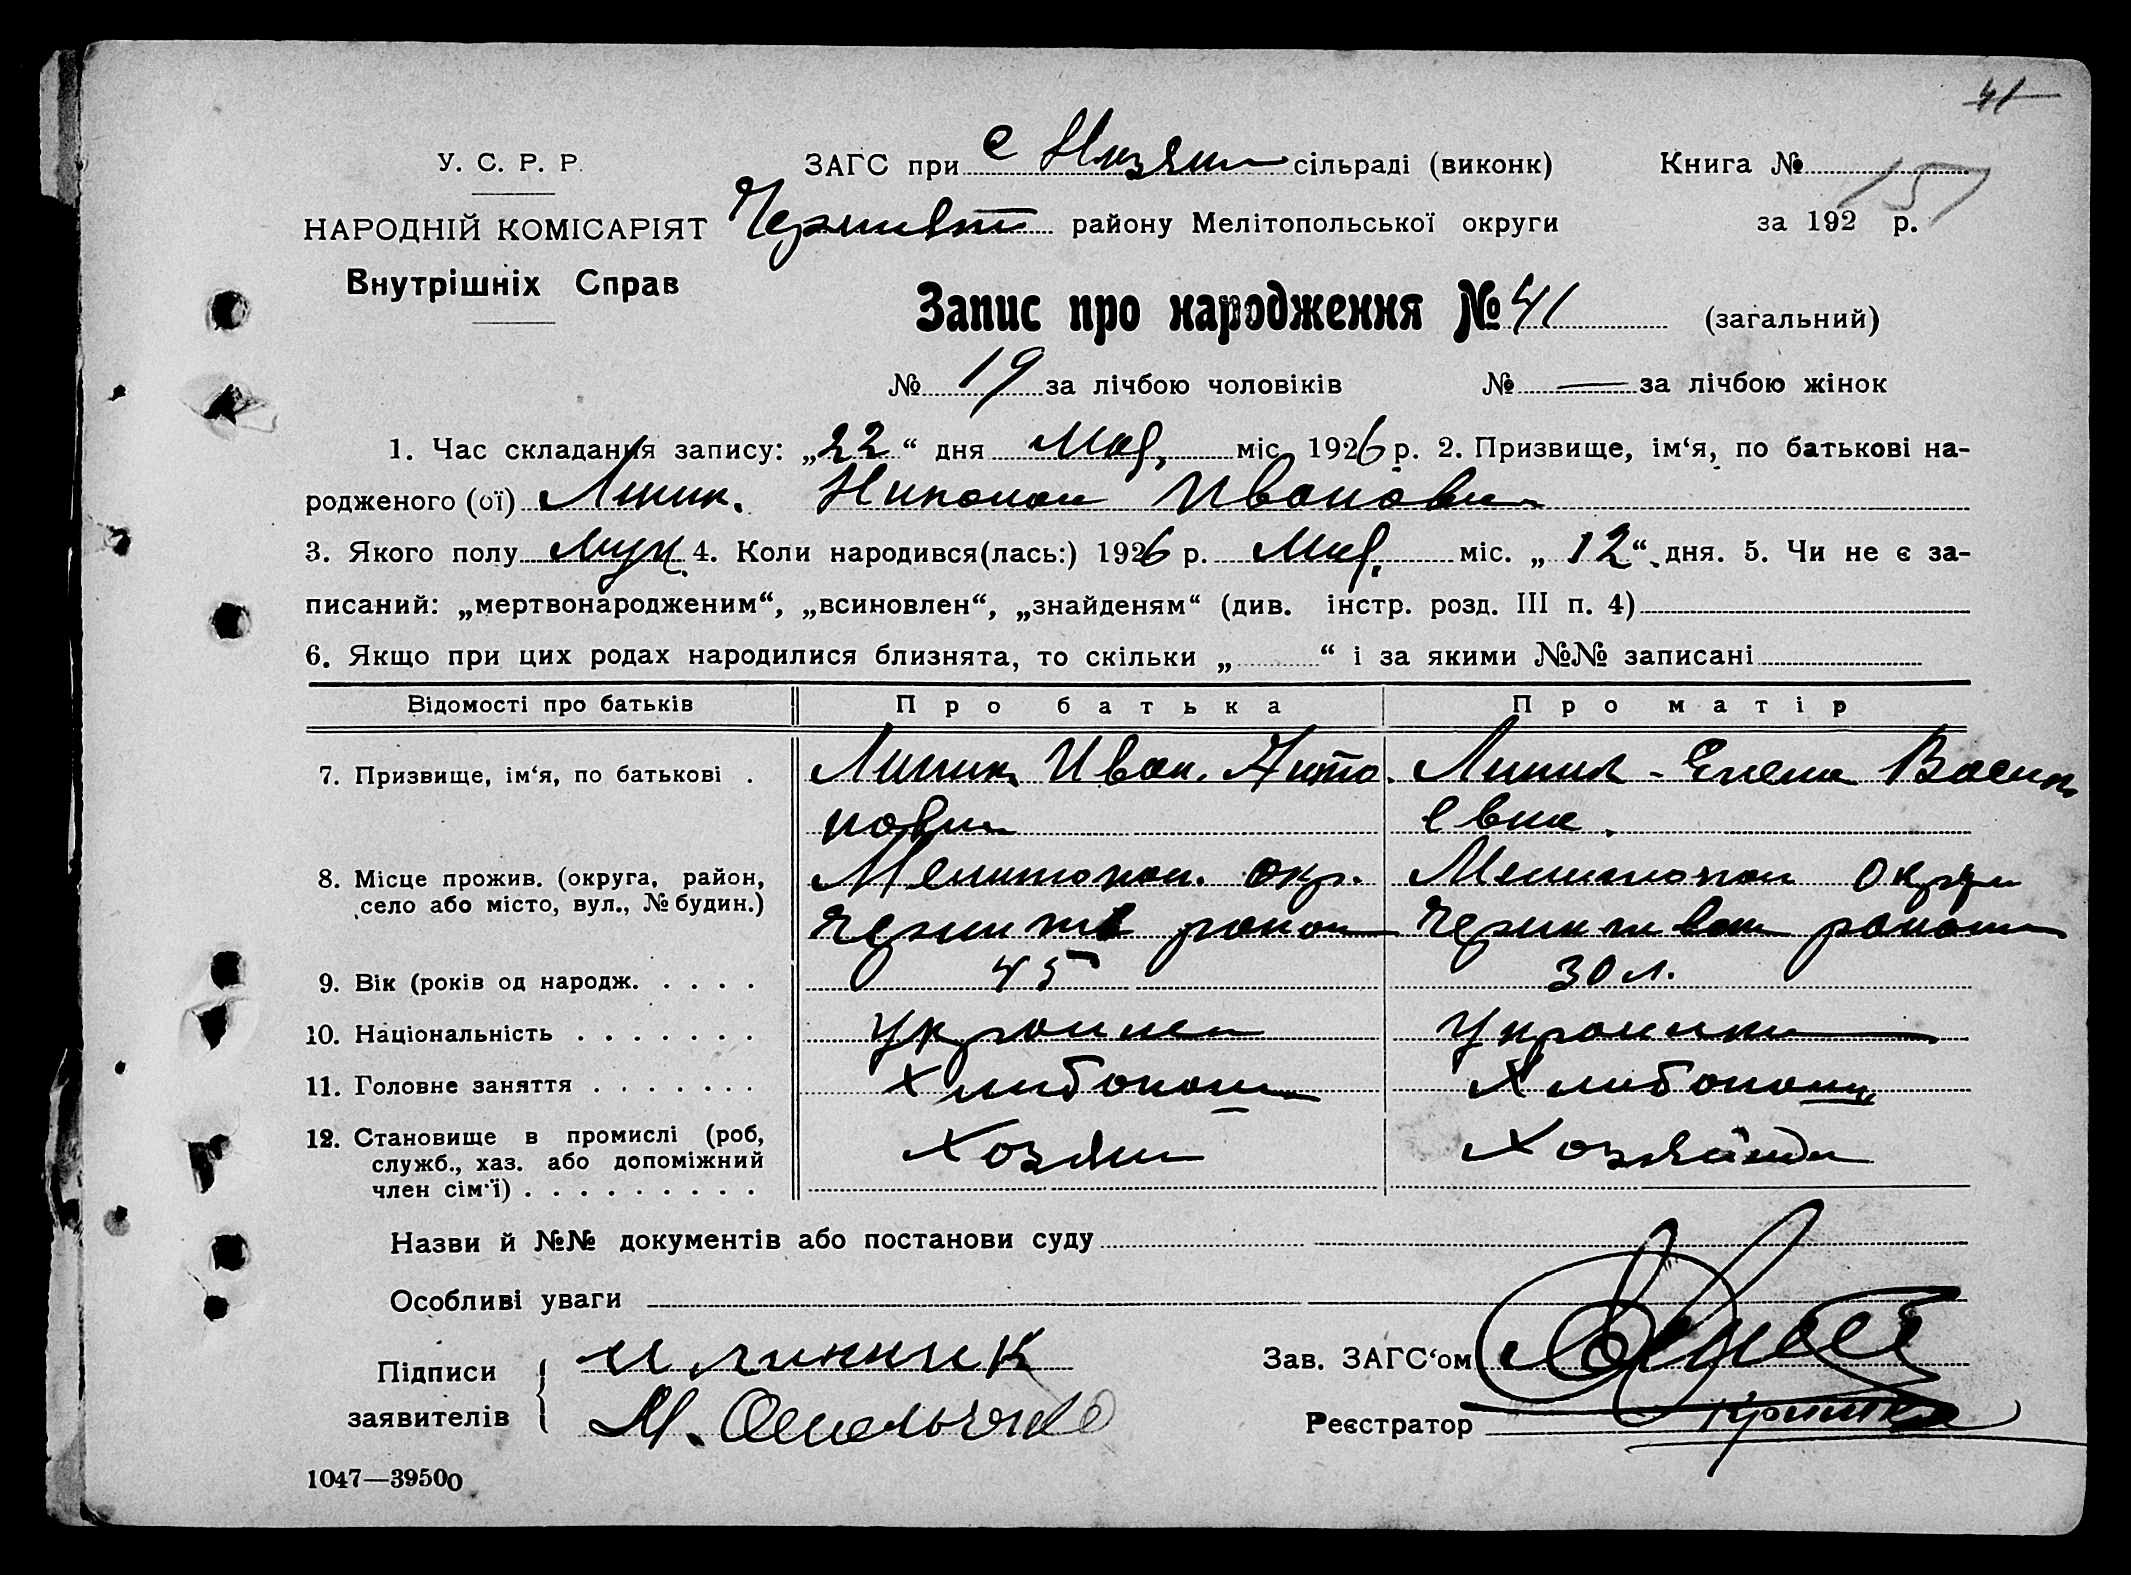 41
У. С. Р. Р. ЗАГС при с Низян сільраді (виконк) Книга № 151
НАРОДНІЙ КОМІСАРІЯТ району Мелітопольської округи за 192 р.
Внутрішніх Справ
Запис про народження № 41 (загальний)
№ 19 за лічбою чоловіків № — за лічбою жінок
1. Час складання запису: „22“ дня Мая, міс. 1926 р. 2. Призвище, ім‘я, по батькові на-
родженого (ої) Линик. Николай Иванович
3. Якого полу Муж. 4. Коли народився(лась:) 1926 р. Мая, міс. „12“ дня. 5. Чи не є за-
писаний: „мертвонародженим“, „всиновлен“, „знайденям“ (див. інстр. розд. III п. 4)
6. Якщо при цих родах народилися близнята, то скільки „ “ і за якими №№ записані
Відомості про батьків Про батька Про матір
7. Призвище, ім‘я, по батькові . Линик Иван. Анто Линик - Елена Васил
нович евна.
8. Місце прожив. (округа, район, Мелитопол. окр. Мелитопол округи
село або місто, вул., № будин.) район района
9. Вік (років од народж. . . . . 45 30 л.
10. Національність . . . . . . . Украинец Украинка
11. Головне заняття . . . . . . . Хлибопаш Хлибопашец
12. Становище в промислі (роб, Хозяин Хозяйка
служб., хаз. або допоміжний
член сім‘ї) . . . . . . . . .
Назви й №№ документів або постанови суду
Особливі уваги
Підписи И линник Зав. ЗАГС‘ом
заявителів М. Омельченко Реєстратор
1047—39500